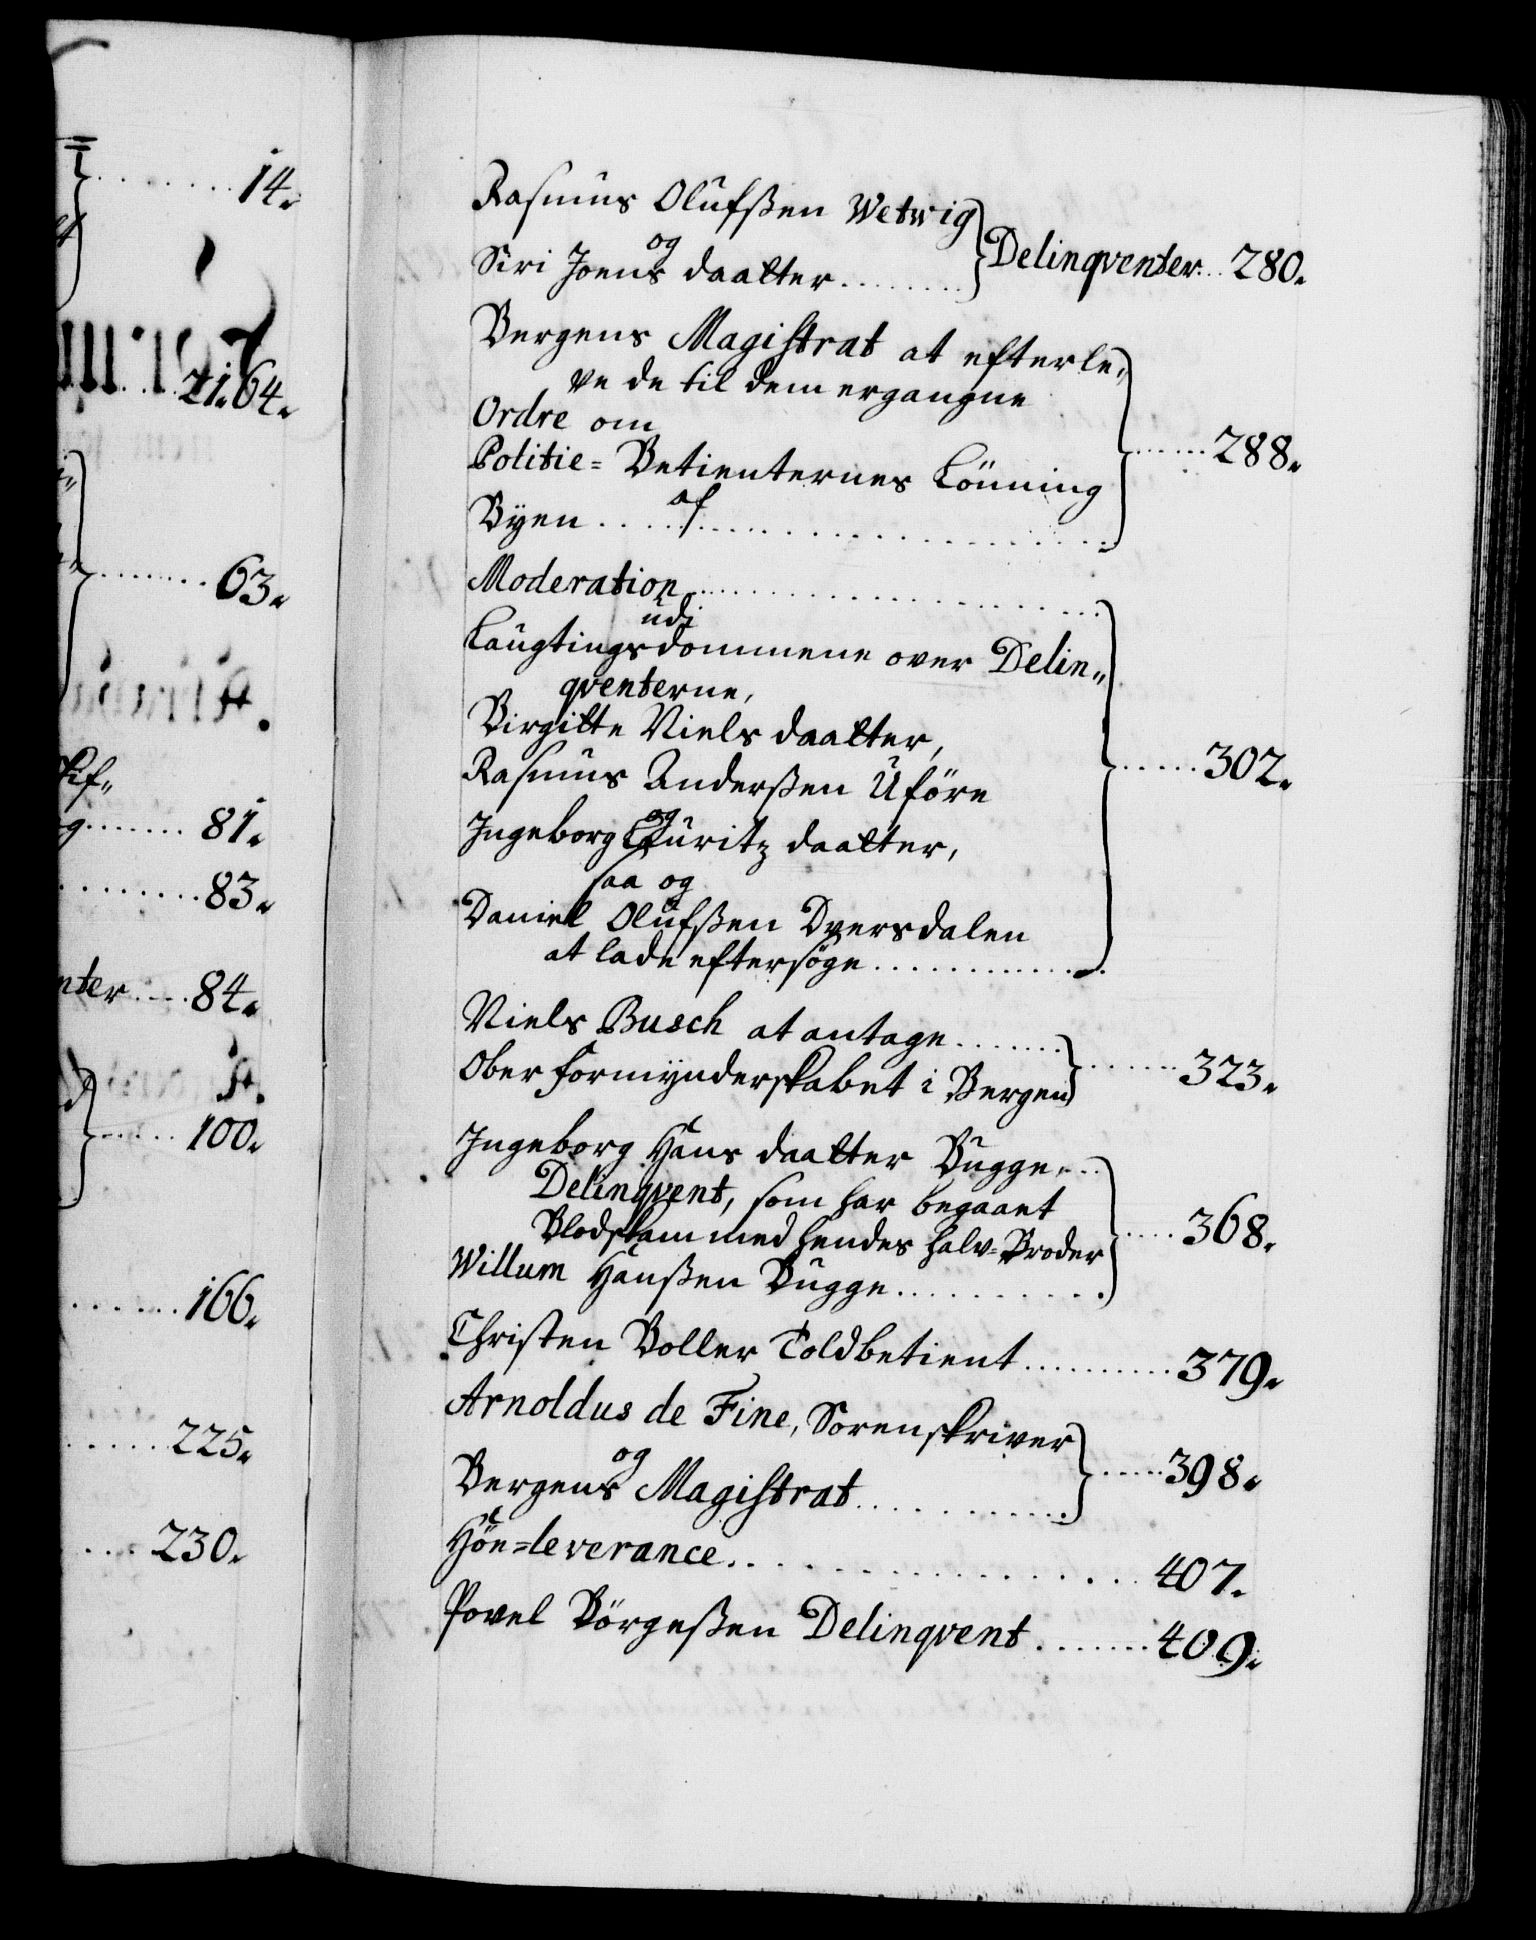 14.
21.64.
63.
81.
83.
nter .... 84.
100.
166.
225.
230.
Rasmus Olufßen Wetwig
og
Siri Joens daatter ........ Delinqventer... 280.
Bergens Magistrat at efterle„
ve de til dem ergangne
Ordre om
Politie= Betienternes Lönning
af
Byen .................... 288.
Moderation ....................
udi
Laugtingsdommene over Delin„
qventerne,
Birgitte Nielsdaatter,
Rasmus Anderßen Uföre
og
Ingeborg Lauritz daatter, ..... 302.
saa og
Daniel Olufßen Dversdalen
at lade eftersöge ............
Niels Busch at antage .......
Oberformynderskabet i Bergen ....... 323.
Ingeborg Hans daatter Bugge, ...
Delinqvent, som har begaaet
Blodskam med hendes halv=Broder ..... 368.
Willum Hanßen Bugge ..........
Christen Boller Toldbetient .......... 379.
Arnoldus de Fine, Sorenskriver
og
Bergens Magistrat ............ 398.
Höe=leverance .................. 407.
Povel Börgeßen Delinqvent ....... 409.